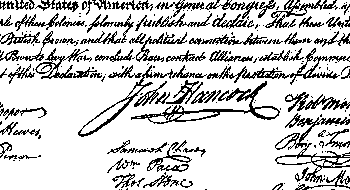 United States of America, in General Congress, Assembled,
of these Colonies, solemnly publish and declare, That these Unit
British Crown, and that all political connection between them and th
Power to levy War, conclude Peace, contract Alliances, establish Commerc
of this Declaration, with a firm reliance on the protection of divine
John Hancock
Hooper
Hewes,
Penn
Samuel Chase
Wm Paca
Thos Stone
Rob Mor
Benjamin
Benj
John Mo